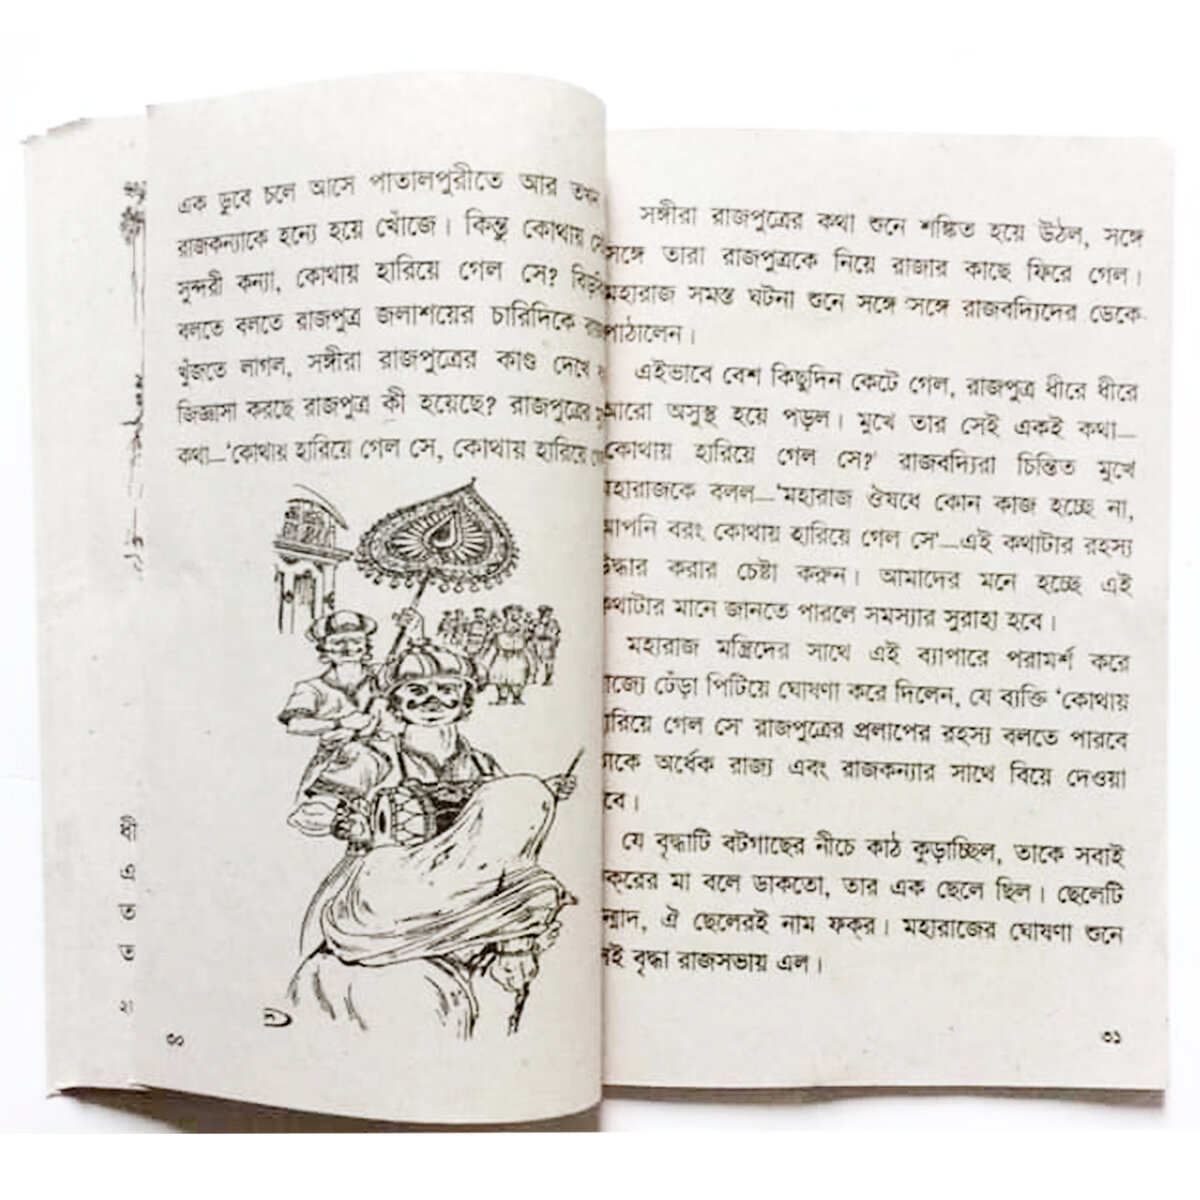 এক ডুবে চলে আসে পাতালপুরীতে আর তখন
রাজকন্যাকে হন্যে হয়ে খোঁজে। কিন্তু কোথায় সে
সুন্দরী কন্যা, কোথায় হারিয়ে গেল সে?
বলতে বলতে রাজপুত্র জলাশয়ের চারিদিকে
খুঁজতে লাগল, সঙ্গীরা রাজপুত্রের কাণ্ড দেখে
জিজ্ঞাসা করছে রাজপুত্র কী হয়েছে? রাজপুত্রের
কথা—‘কোথায় হারিয়ে গেল সে, কোথায় হারিয়ে
৩০
সঙ্গীরা রাজপুত্রের কথা শুনে শঙ্কিত হয়ে উঠল, সঙ্গে
সঙ্গে তারা রাজপুত্রকে নিয়ে রাজার কাছে ফিরে গেল।
মহারাজ সমস্ত ঘটনা শুনে সঙ্গে সঙ্গে রাজবদ্যিদের ডেকে
পাঠালেন।
এইভাবে বেশ কিছুদিন কেটে গেল, রাজপুত্র ধীরে ধীরে
আরো অসুস্থ হয়ে পড়ল। মুখে তার সেই একই কথা—
কোথায় হারিয়ে গেল সে?’ রাজবদ্যিরা চিন্তিত মুখে
মহারাজকে বলল—‘মহারাজ ঔষধে কোন কাজ হচ্ছে না,
আপনি বরং কোথায় হারিয়ে গেল সে’—এই কথাটার রহস্য
উদ্ধার করার চেষ্টা করুন। আমাদের মনে হচ্ছে এই
কথাটার মানে জানতে পারলে সমস্যার সুরাহা হবে।
মহারাজ মন্ত্রিদের সাথে এই ব্যাপারে পরামর্শ করে
রাজ্যে ঢেঁড়া পিটিয়ে ঘোষণা করে দিলেন, যে ব্যক্তি ‘কোথায়
হারিয়ে গেল সে’ রাজপুত্রের প্রলাপের রহস্য বলতে পারবে
তাকে অর্ধেক রাজ্য এবং রাজকন্যার সাথে বিয়ে দেওয়া
হবে।
যে বৃদ্ধাটি বটগাছের নীচে কাঠ কুড়াচ্ছিল, তাকে সবাই
ফক্‌রের মা বলে ডাকতো, তার এক ছেলে ছিল। ছেলেটি
উন্মাদ, ঐ ছেলেরই নাম ফক্‌র। মহারাজের ঘোষণা শুনে
সেই বৃদ্ধা রাজসভায় এল।
৩১